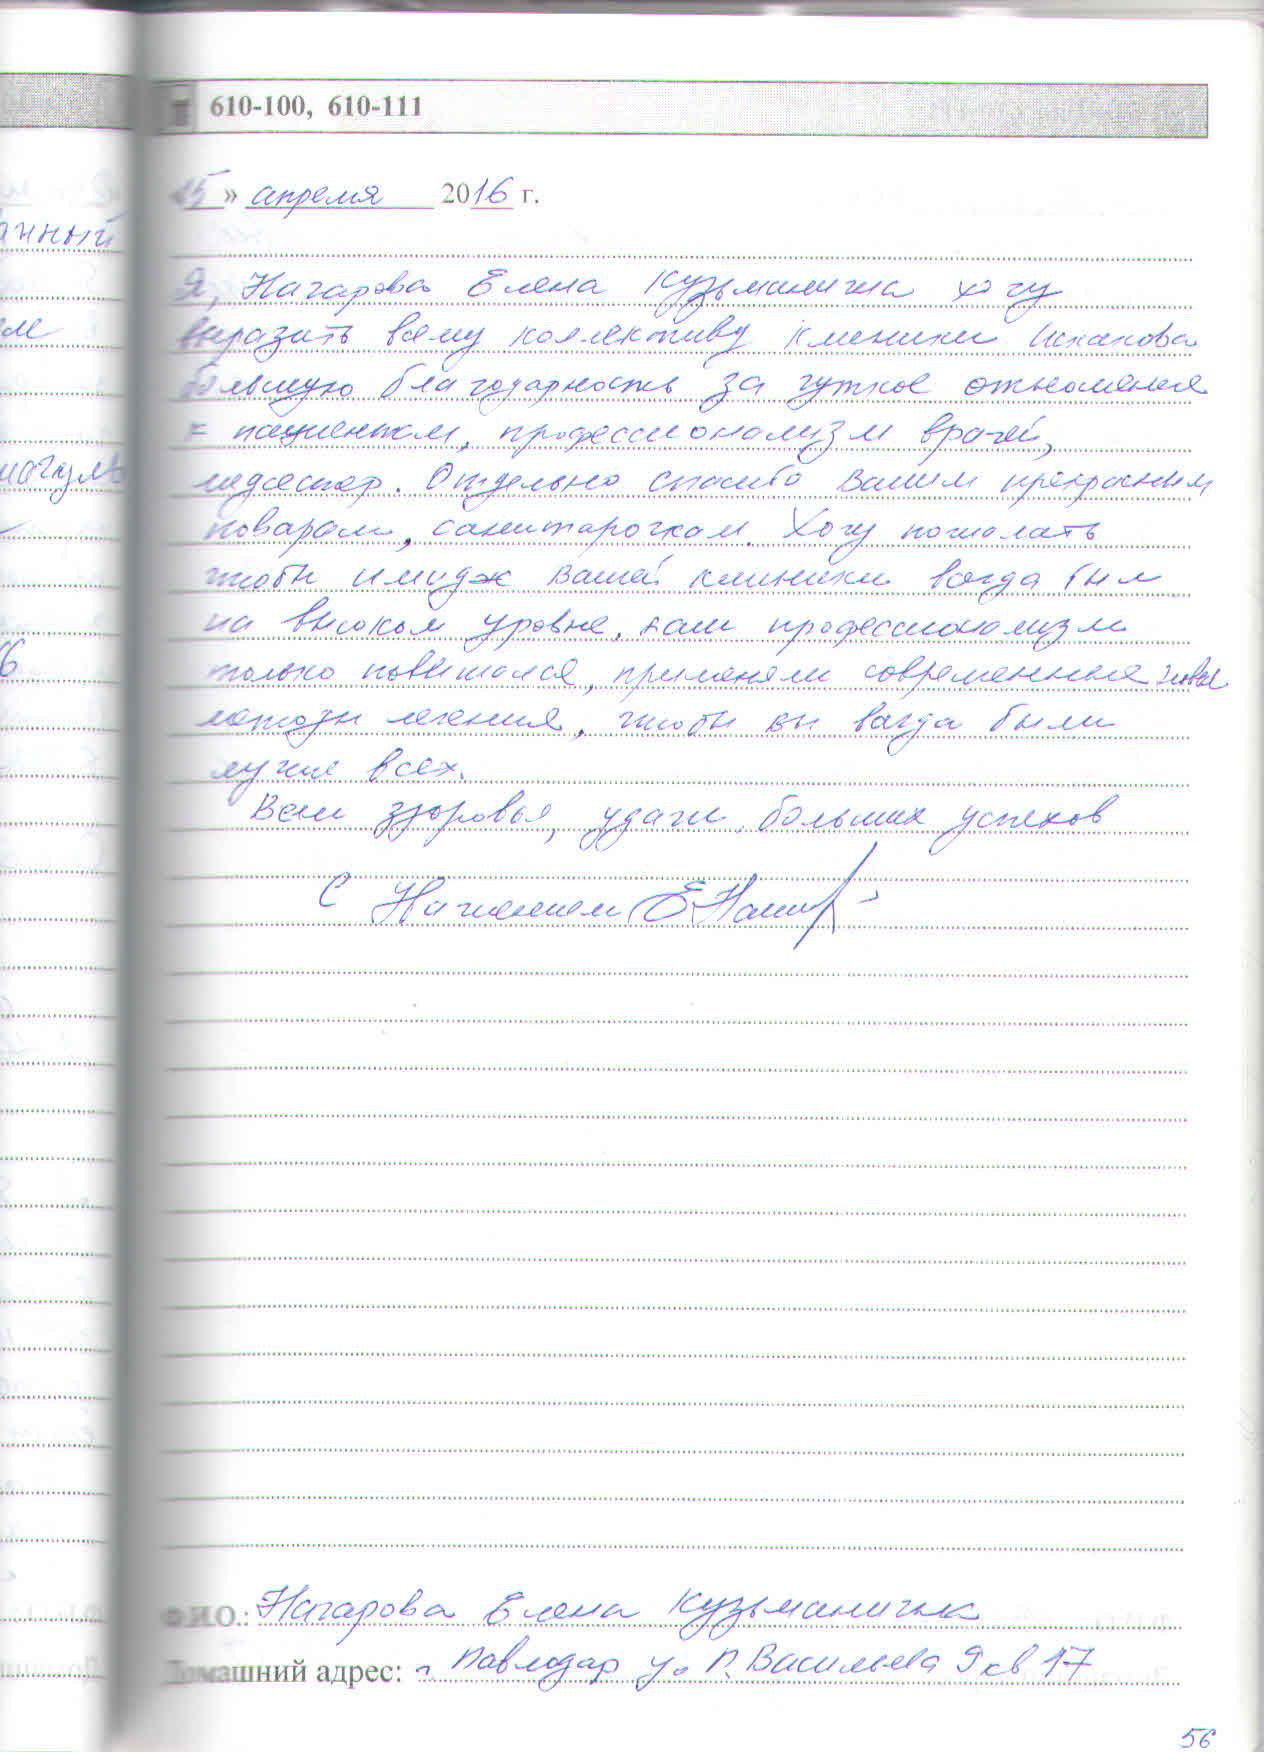 610-100, 610-111
15» апреля 2016 г.
анный
Я, Нагарова Елена Кузьминична хочу
выразить всему коллективу клиники Искакова
большую благодарность за чуткое отношение
к пациентам, профессионализм врачей,
медсестер. Отдельно спасибо Вашим прекрасным
поварам, санитарочкам. Хочу пожелать
чтобы имидж Вашей клиники всегда был
на высоком уровне, ваш профессионализм
только повышался, применяли современные новые
методы лечения, чтобы вы всегда были
лучше всех.
Вам здоровья, удачи, больших успехов
С
Ф.И.О.: Нагарова Елена Кузьминична
Домашний адрес: г. Павлодар ул. П. Васильева 9 кв 17
56